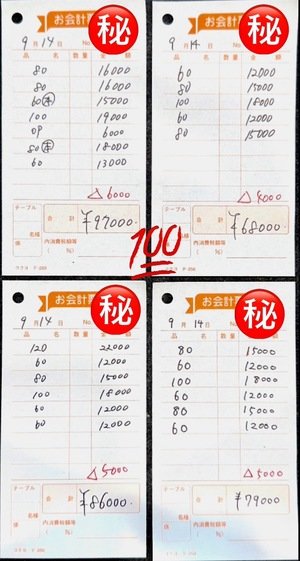 お会計票
㊙
9月14日 No
品名 数量 金額
80 16000
80 16000
60 本 15000
100 19000
OP 6000
80 本 18000
60 13000
△6000
テーブル
合計 ¥97000
係 名様 内消費税額等
( %)
お会計票
㊙
9月14日 No
品名 数量 金額
60 12000
80 15000
100 18000
60 12000
80 15000
△4000
テーブル
合計 ¥68000
係 名様 内消費税額等
( %)
100
お会計票
㊙
9月14日 No
品名 数量 金額
120 22000
60 12000
80 15000
100 18000
60 12000
60 12000
△5000
テーブル
合計 ¥86000
係 名様 内消費税額等
( %)
お会計票
㊙
9月14日 No
品名 数量 金額
80 15000
60 12000
100 18000
60 12000
80 15000
60 12000
△5000
テーブル
合計 ¥79000
係 名様 内消費税額等
( %)